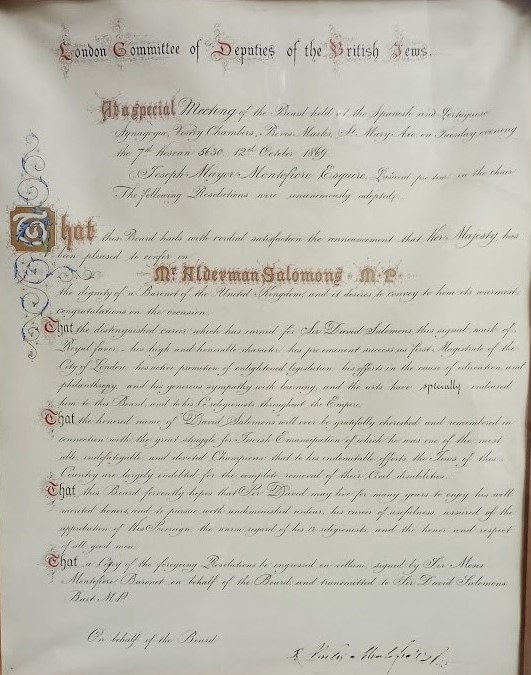 London Committee of Deputies of the British Jews.
At a special Meeting of the Board held at the Spanish and Portuguese
Synagogue, Vestry Chambers, Bevis Marks, St. Mary Axe, on Tuesday evening
the 7th Hesvan 5630, 12th October 1869.
Joseph Mayer Montefiore Esquire, President pro tem in the chair
The following Resolutions were unanimously adopted.
That this Board hails with cordial satisfaction the announcement that Her Majesty has
been pleased to confer on
Mr Alderman Salomons M.P.
the dignity of a Baronet of the United Kingdom and it desires to convey to him its warmest
congratulations on the occasion.
That the distinguished career which has earned for Sir David Salomons this signal mark of
Royal favor, his high and honorable character, his preeminent success as first Magistrate of the
City of London, his active promotion of enlightened legislation, his efforts in the cause of education and
philanthropy, and his generous sympathy with learning and the arts have specially endeared
him to this Board, and to his Coreligionists throughout the Empire.
That the honored name of David Salomons will ever be gratefully cherished and remembered in
connection with the great struggle for Jewish Emancipation of which he was one of the most
able, indefatigable, and devoted Champions that to his indomitable efforts the Jews of this
Country are largely indebted for the complete removal of their Civil disabilities.
That this Board fervently hopes that Sir David may live for many years to enjoy his well
merited honors, and to pursue with undiminished ardour, his career of usefulness, assured of the
approbation of his Sovereign, the warm regard of his co-religionists, and the honor and respect
of all good men.
That a Copy of the foregoing Resolutions be engrossed on vellum, signed by Sir Moses
Montefiore Baronet on behalf of the Board and transmitted to Sir David Salomons
Bart M.P.
On behalf of the Board